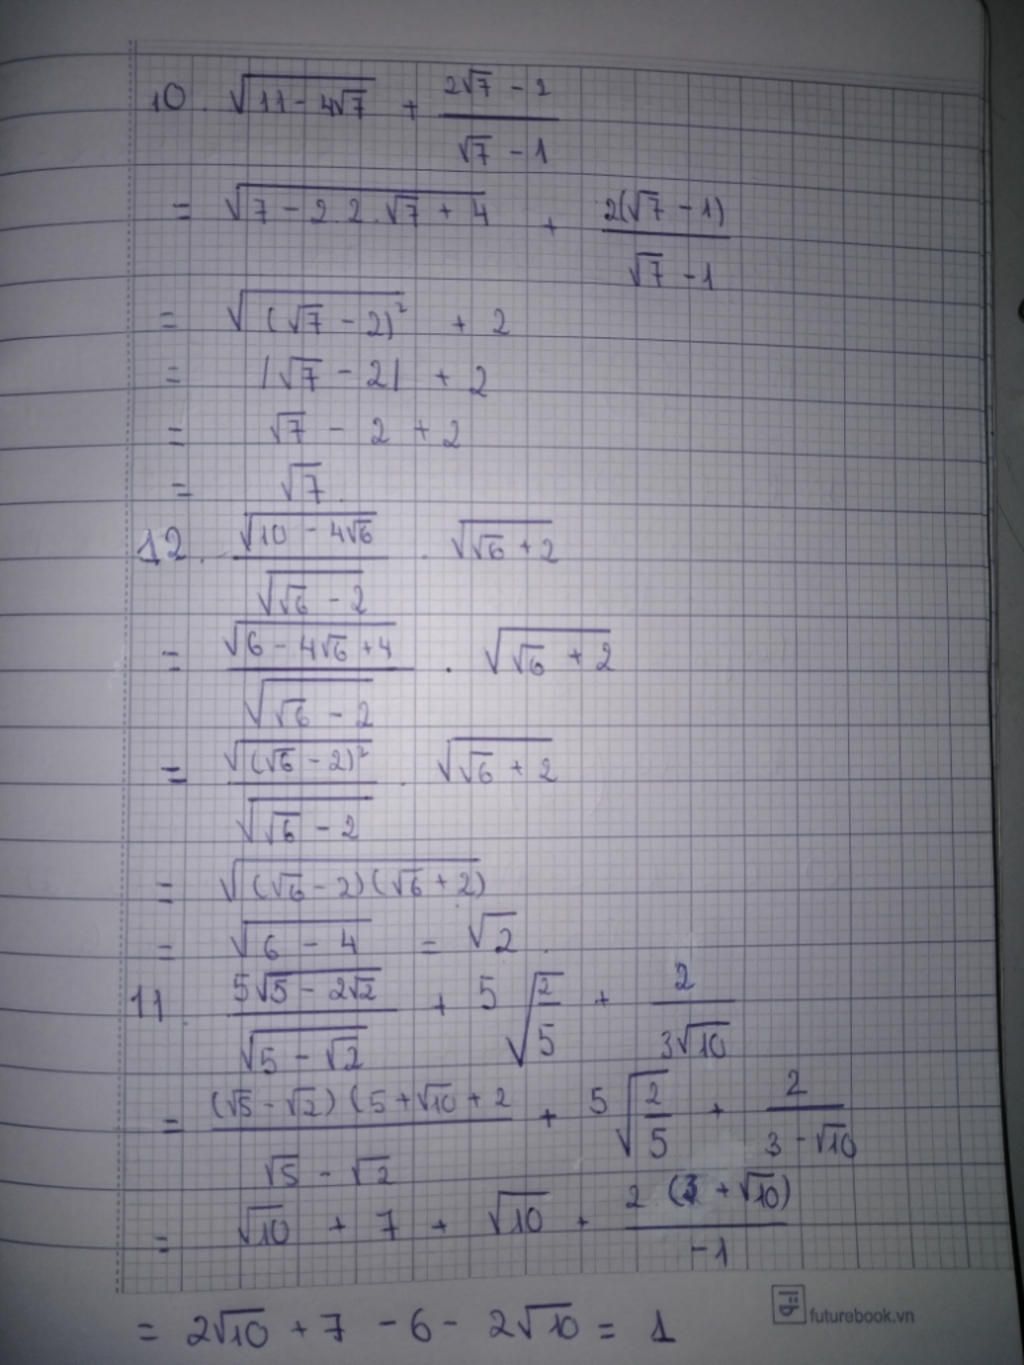 10. √(11 - 4√7) + (2√7 - 2)/(√7 - 1)
= √(7 - 2.2.√7 + 4) + 2(√7 - 1)/(√7 - 1)
= √((√7 - 2)²) + 2
= |√7 - 2| + 2
= √7 - 2 + 2
= √7.
12. √(10 - 4√6)/√(√6 - 2) . √(√6 + 2)
= √(6 - 4√6 + 4)/√(√6 - 2) . √(√6 + 2)
= √((√6 - 2)²)/√(√6 - 2) . √(√6 + 2)
= √((√6 - 2)(√6 + 2))
= √(6 - 4) = √2.
11. (5√5 - 2√2)/√(5 - √2) + 5√(2/5) + 2/(3√10)
= (√5 - √2)(5 + √10 + 2/(√5 - √2) + 5√(2/5) + 2/(3 - √10)
= √10 + 7 + √10 + 2(3 + √10)/-1
= 2√10 + 7 - 6 - 2√10 = 1
futurebook.vn